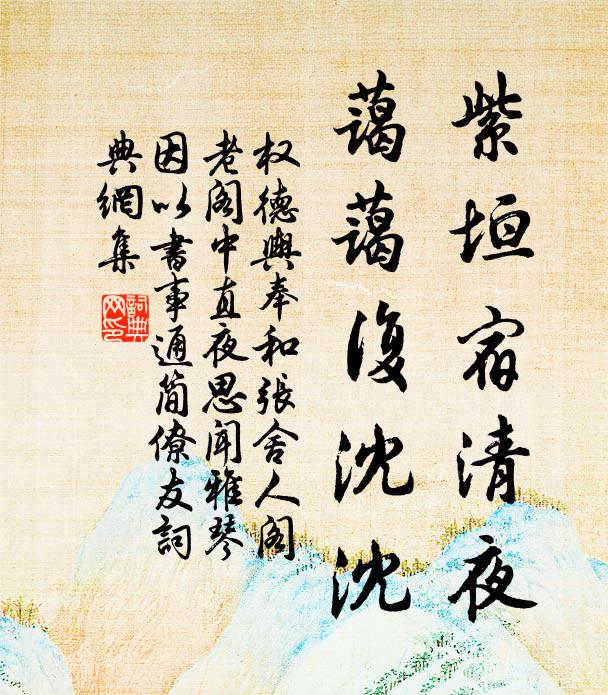 紫垣宿清夜
藹藹復沈沈
权德輿奉和張舍人阁
老阁中直夜思闻雅琴
因以書事通简僚友詞
典網集
詞典網印